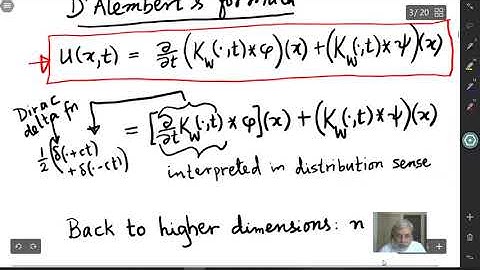 D'Alembert's formula
3 / 20
u(x,t) = ∂/∂t (K_W(·,t)*φ)(x) + (K_W(·,t)*ψ)(x)
Dirac
delta fn
= [∂/∂t K_W(·,t)*φ](x) + (K_W(·,t)*ψ)(x)
1/2(δ(·+ct)
+δ(·-ct))
interpreted in distribution sense
Back to higher dimensions: n